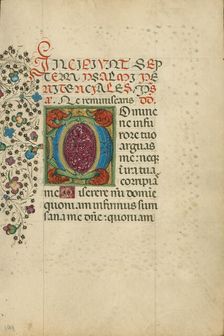 INCIPIVNT SEP
TEM PSALMI PE
NITENCIALES PS
Ne reminiscaris
Domine
ne in fu
rore tuo
arguas
me: neq
in ira tua
corripia
me Miserere mei domie
quoniam infirmus sum
sana me dñe: quoniam